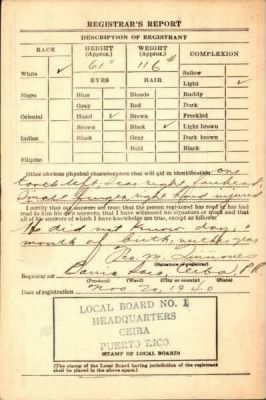 REGISTRAR'S REPORT
DESCRIPTION OF REGISTRANT
RACE HEIGHT (Approx.) WEIGHT (Approx.) COMPLEXION
61" 116 #
White ✓ Sallow
EYES HAIR Light ✓
Negro Blue Blonde Ruddy
Gray Red Dark
Oriental Hazel ✓ Brown Freckled
Brown Black ✓ Light brown
Indian Black Gray Dark brown
Bald Black
Filipino
Other obvious physical characteristics that will aid in identification one
left, scar right forehead,
small finger right hand injured
I certify that my answers are true; that the person registered has read or has had
read to him his own answers; that I have witnessed his signature or mark and that
all of his answers of which I have knowledge are true, except as follows:
He did not know day,
month of birth, neither year
M. Quinones
(Signature of registrar)
Registrar for Ceiba, P.R.
(Precinct) (Ward) (City or county) (State)
Date of registration Nov. 20, 1940
LOCAL BOARD NO. 1
HEADQUARTERS
CEIBA
PUERTO RICO
(STAMP OF LOCAL BOARD)
(The stamp of the Local Board having jurisdiction of the registrant shall
be placed in the above space.)